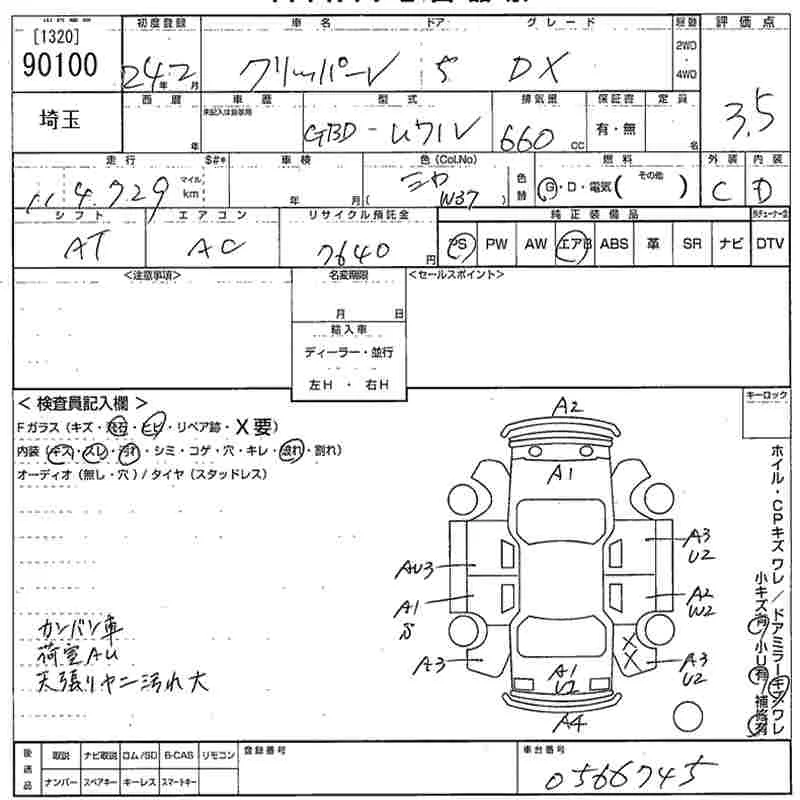 [1320]
90100
初度登録
24年2月
車名
クリッパーV
ドア
5
グレード
DX
駆動
2WD
・
4WD
評価点
3.5
埼玉
西暦
年
車歴
未記入は自家用
型式
GBD-U71V
排気量
660 CC
保証書
有・無
定員
名
走行
114,729
マイル
km
S#*
車検
年 月
色(Col.No)
( W37 )
色替
燃料
G・D・電気( その他 )
外装
C
内装
D
シフト
AT
エアコン
AC
リサイクル預託金
7640円
純正装備品
PS PW AW エアB ABS 革 SR ナビ DTV
<注意事項>
名変期限
月 日
<セールスポイント>
輸入車
ディーラー・並行
左H ・ 右H
< 検査員記入欄 >
Fガラス(キズ・飛石・ヒビ・リペア跡・X要)
内装(キズ・スレ・汚れ・シミ・コゲ・穴・キレ・破れ・割れ)
オーディオ(無し・穴)/タイヤ(スタッドレス)
カンバン車
荷室AU
天張りヤニ汚れ大
A2
A1
A3
U2
AU3
A1
S
A2
W2
A3
X
X
A3
U2
A1
U2
A4
キーロック
ホイル・CPキズ ワレ/ドアミラーキズ ワレ
小キズ有 小U有 補修有
後送品
取説 ナビ取説 ロム/SD B-CAS リモコン
ナンバー スペアキー キーレス スマートキー
登録番号
車台番号
0566745